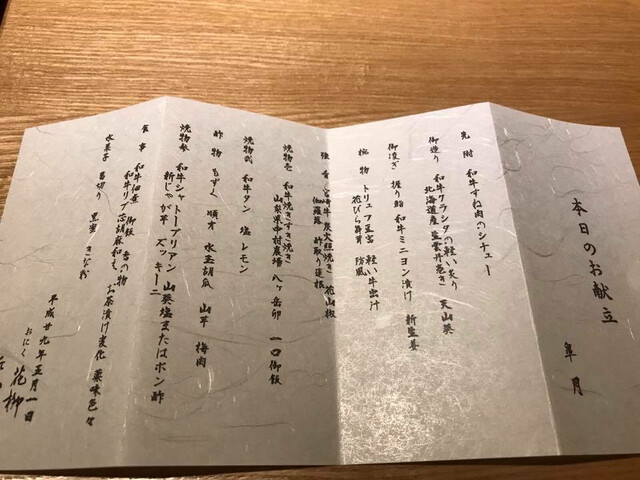 本日のお献立
皐月
先附 和牛すね肉のシチュー
御造り 和牛クラシタの軽い炙り 天山葵
北海道産生雲丹巻き
御凌ぎ 握り鮨 和牛ミニヨン漬け 新生姜
椀物 トリュフ玉宮 軽い牛出汁
花びら舞茸 防風
強肴 宮崎牛炭火照焼き 花山椒
伽羅蕗 酢取り蓮根
焼物壱 和牛焼きすき焼き
山梨県中村農場 八ヶ岳卵 一口御飯
焼物弐 和牛タン 塩レモン
酢物 もずく 順才 水玉胡瓜 山芋 梅肉
焼物参 和牛シャトーブリアン 山葵塩またはポン酢
新じゃが芋 ズッキーニ
食事 和牛佃煮 御飯 香の物
和牛リブ芯胡麻和え お茶漬け変化 薬味色々
水菓子 葛切り 黒蜜 きな粉
平成廿九年五月一日
おにく 花柳